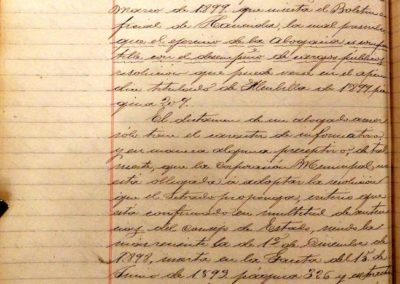 marzo de 1897 que inserta el Boletin
ficial de Hacienda, la cual
que el ejercicio de la Abogacia
tible con el desempeño de cargos publicos
resolucion que puede verse en el apen
dice titulado de Alcubilla de 1897 pa
gina 207.
El dictamen de un abogado
solo tiene el caracter de informativo
y en manera alguna preceptivo, de tal
suerte, que la Corporación Municipal, no
está obligada á adoptar la solucion
que el Letrado proponga, criterio que
está confirmado en multitud de
del Consejo de Estado, siendo la
de 12 de Diciembre de
1898, inserta en la Gaceta del 15 de
Junio de 1892 página 326 y